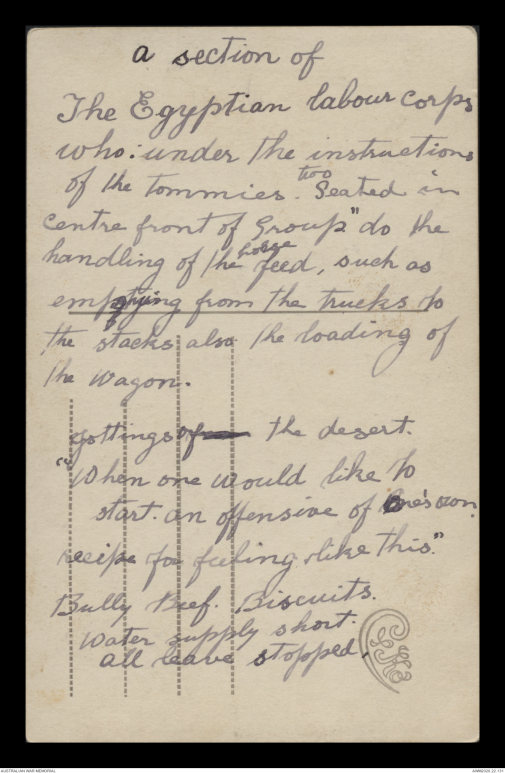 a section of
The Egyptian labour corps
who: under the instructions
of the tommies. too Seated in
centre front of Group" do the
handling of the horse feed, such as
emptying from the trucks to
the stacks also the loading of
the wagon.
gottings of the desert.
"When one would like to
start. an offensive of One's own.
recipe for feeling like this."
Bully Beef. Biscuits.
Water supply short.
all leave stopped.
AUSTRALIAN WAR MEMORIAL